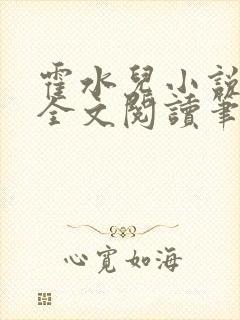 霍水兒小說
全文閱讀筆
心寬如海